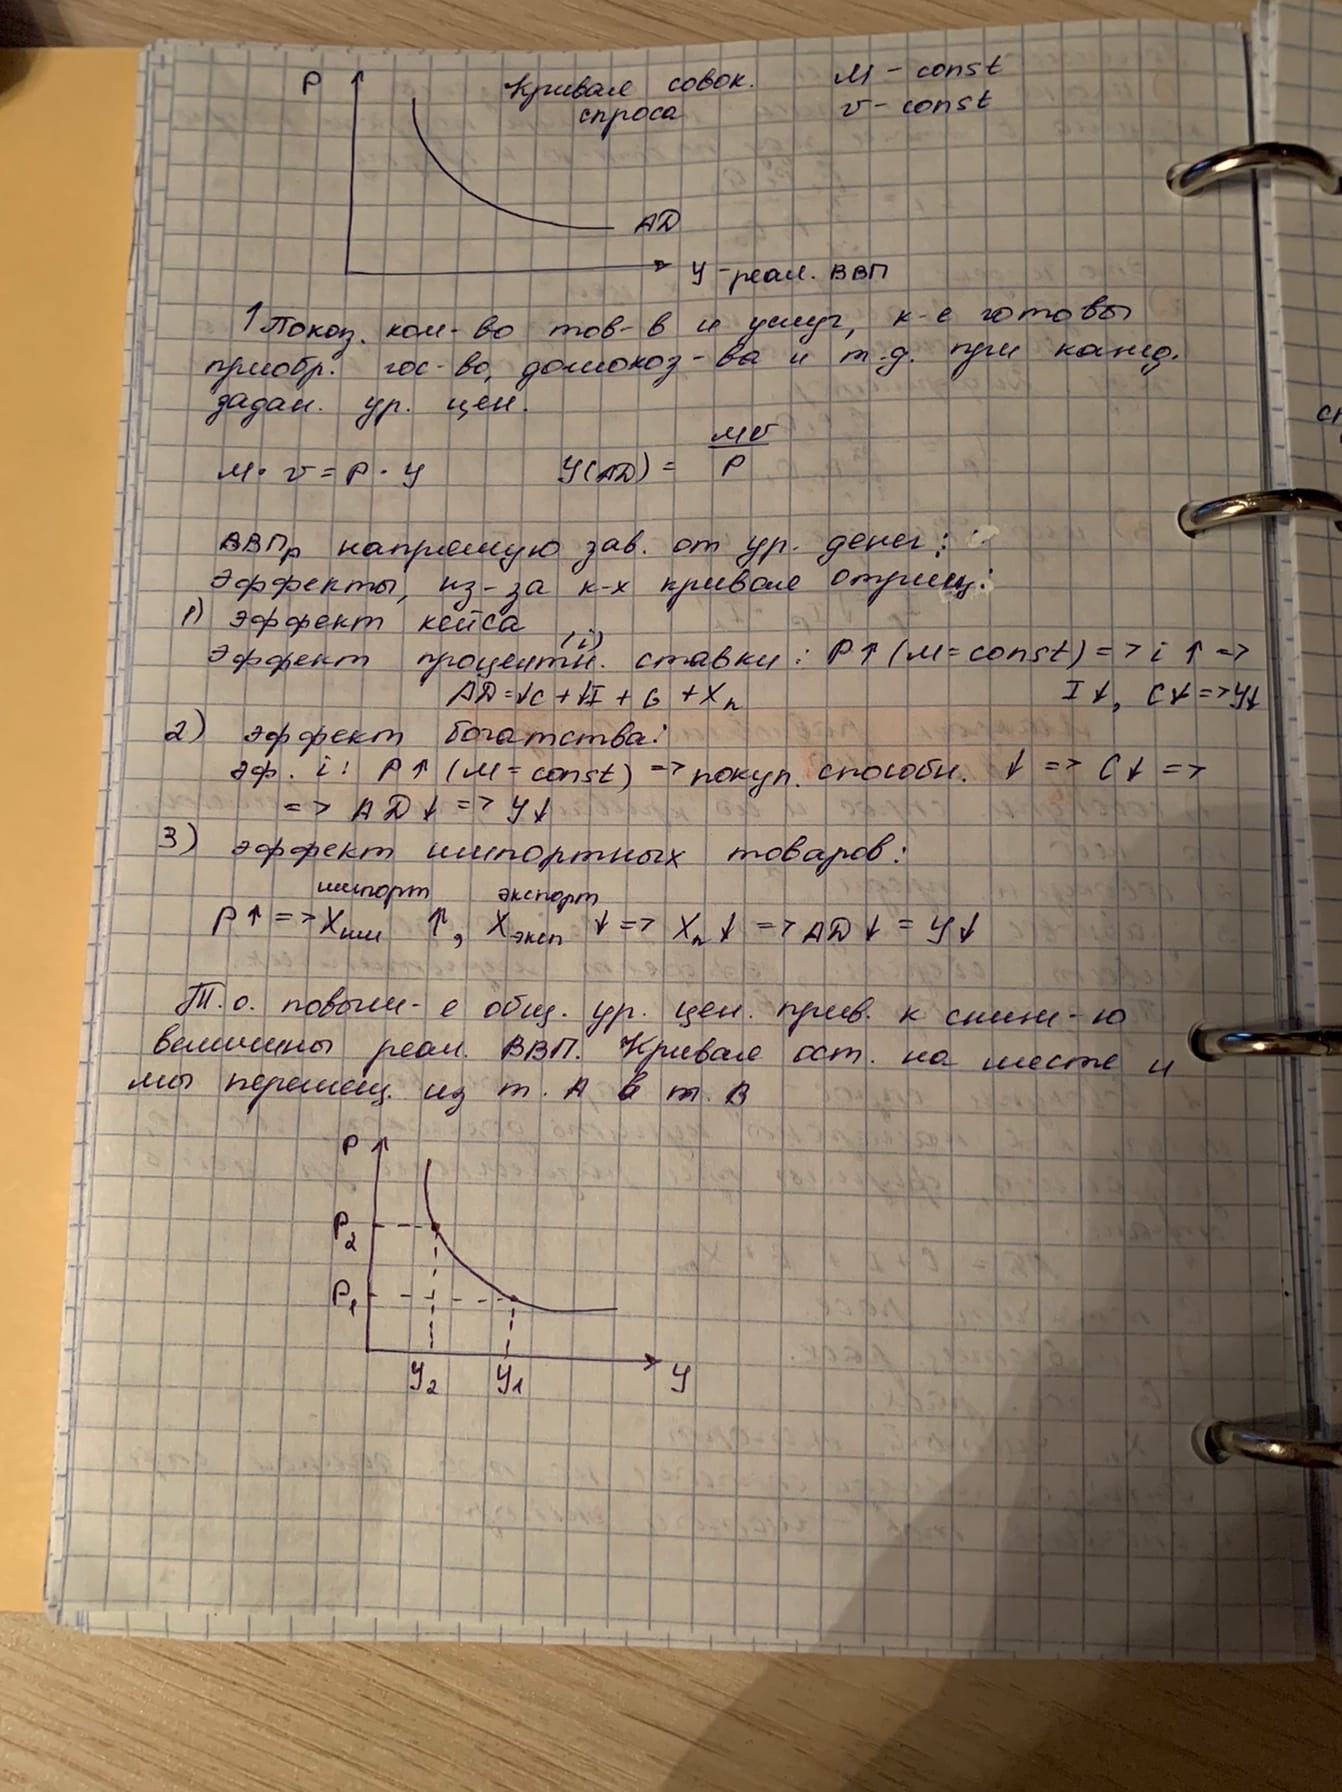 P
Кривая совок. M - const
спроса v - const
AD
Y - реал. ВВП
1 Показ. кол-во тов-в и услуг, к-е готовы
приобр. гос-во, домохоз-ва и т.д. при кажд.
задан. ур. цен.
M · v = P · Y Y(AD) = Mv/P
ВВПр напрямую зав. от ур. денег:
Эффекты, из-за к-х кривая отриц:
1) эффект кейса
Эффект процентн. (i) ставки: P↑ (M=const) => i ↑ =>
AD=↓C+↓I + G +Xn I↓, C↓ => Y↓
2) эффект богатства:
эф. i: P↑ (M=const) => покуп. способн. ↓ => C↓ =>
=> AD↓ => Y↓
3) эффект импортных товаров:
импорт экспорт
P↑ => Xим ↑, Xэксп ↓ => Xn↓ => AD↓ = Y↓
Т.о. повыш-е общ. ур. цен. прив. к сниж-ю
величины реал. ВВП. Кривая ост. на месте и
мы перемещ. из т. А в т. В
P
P2
P1
Y2 Y1 Y